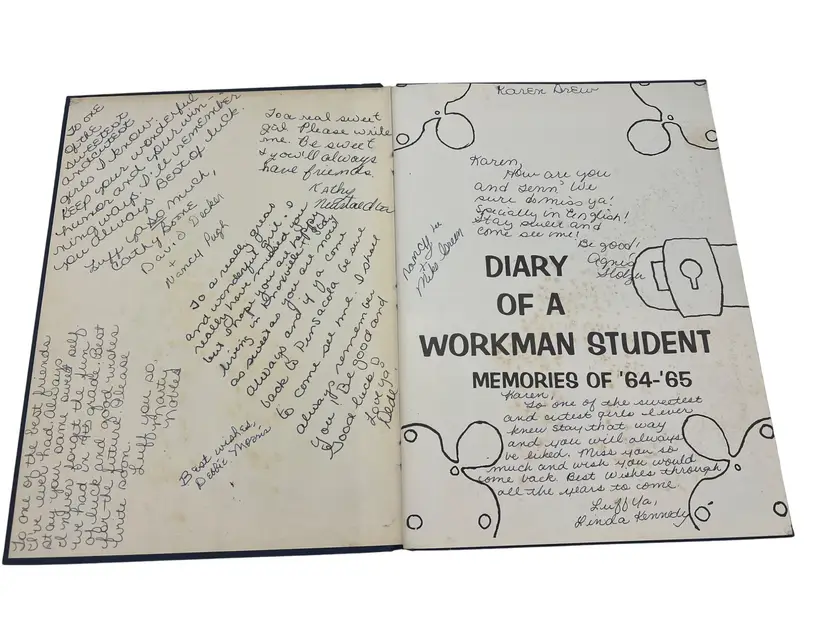 To one
of the
sweetest
and cutest
girls I know.
Keep your wonderful
humor and your win-
ning ways. I'll remember
you always. Best of luck.
Luff ya so much,
Cathy Boone
+ David Decker
Nancy Pugh
To a real sweet
girl. Please write
me. Be sweet
& you'll always
have friends.
Kathy
To a really great
and wonderful girl. I
really have missed you
but I hope you are happy
living in Knoxville. Stay
as sweet as you are now
always and if ya come
back to Pensacola be sure
to come see me. I shall
always remember
you! Be good and
Good luck!
Love ya!
Dede
To one of the best friends
I've ever had. Always
stay your same sweet self
I'll never forget the fun
we had in grade. Best
of luck and good wishes
for the future. Please
write soon.
Luff you so,
Marty
Best wishes,
Debbie
Karen Drew
Karen,
How are you
and Tenn? We
sure do miss ya!
Specially in English!
Stay sweet and
come see me!
Be good!
Agnes
Nancy
+
Mike
DIARY
OF A
WORKMAN STUDENT
MEMORIES OF '64-'65
Karen,
To one of the sweetest
and cutest girls I ever
knew stay that way
and you will always
be liked. Miss you so
much and wish you would
come back. Best wishes through
all the years to come.
Luff Ya,
Linda Kennedy